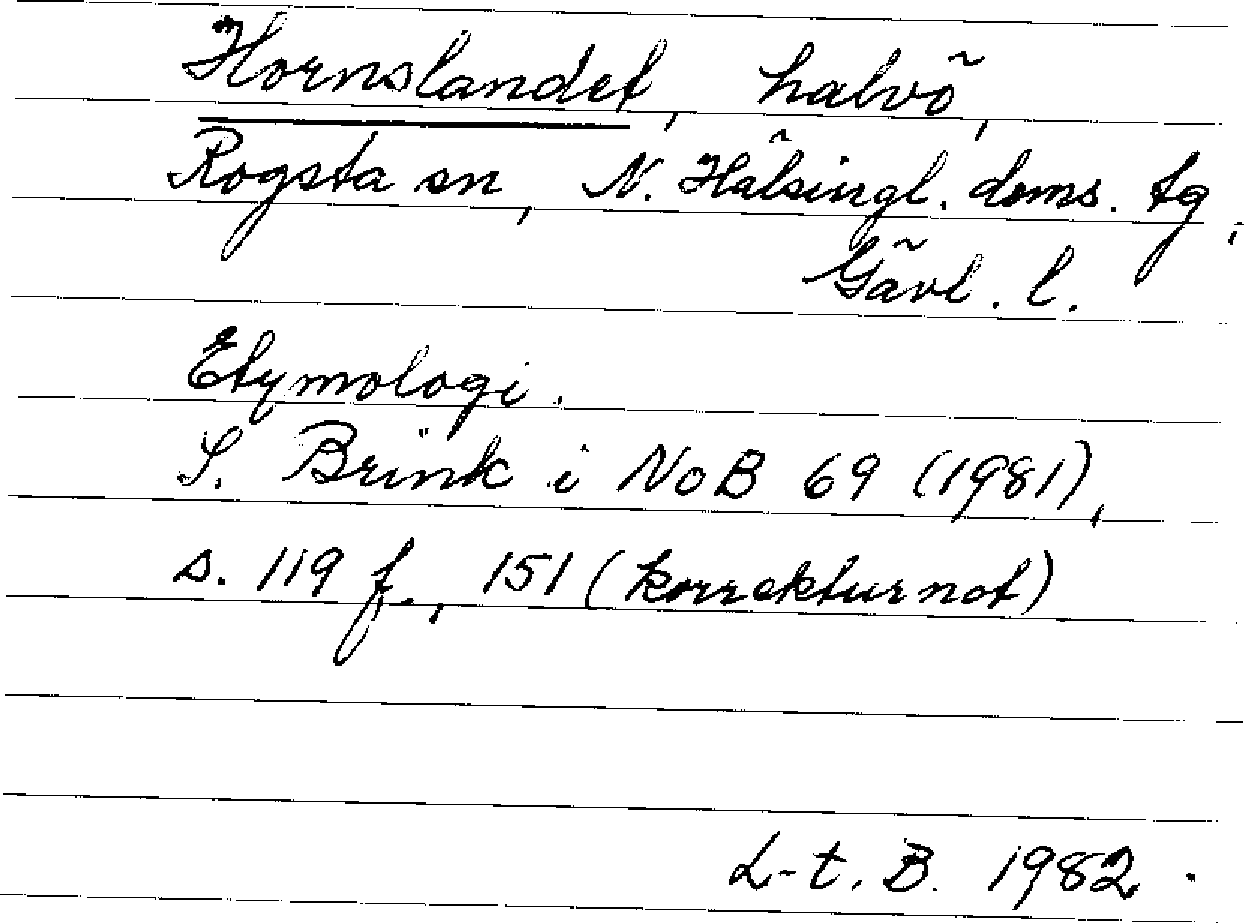 Hornslandet, halvö,
Rogsta sn, N. Hälsingl. doms. tg,
Gävl. l.
Etymologi.
S. Brink i NoB 69 (1981),
s. 119 f., 151 (korrekturnot)
L-t. B. 1982.